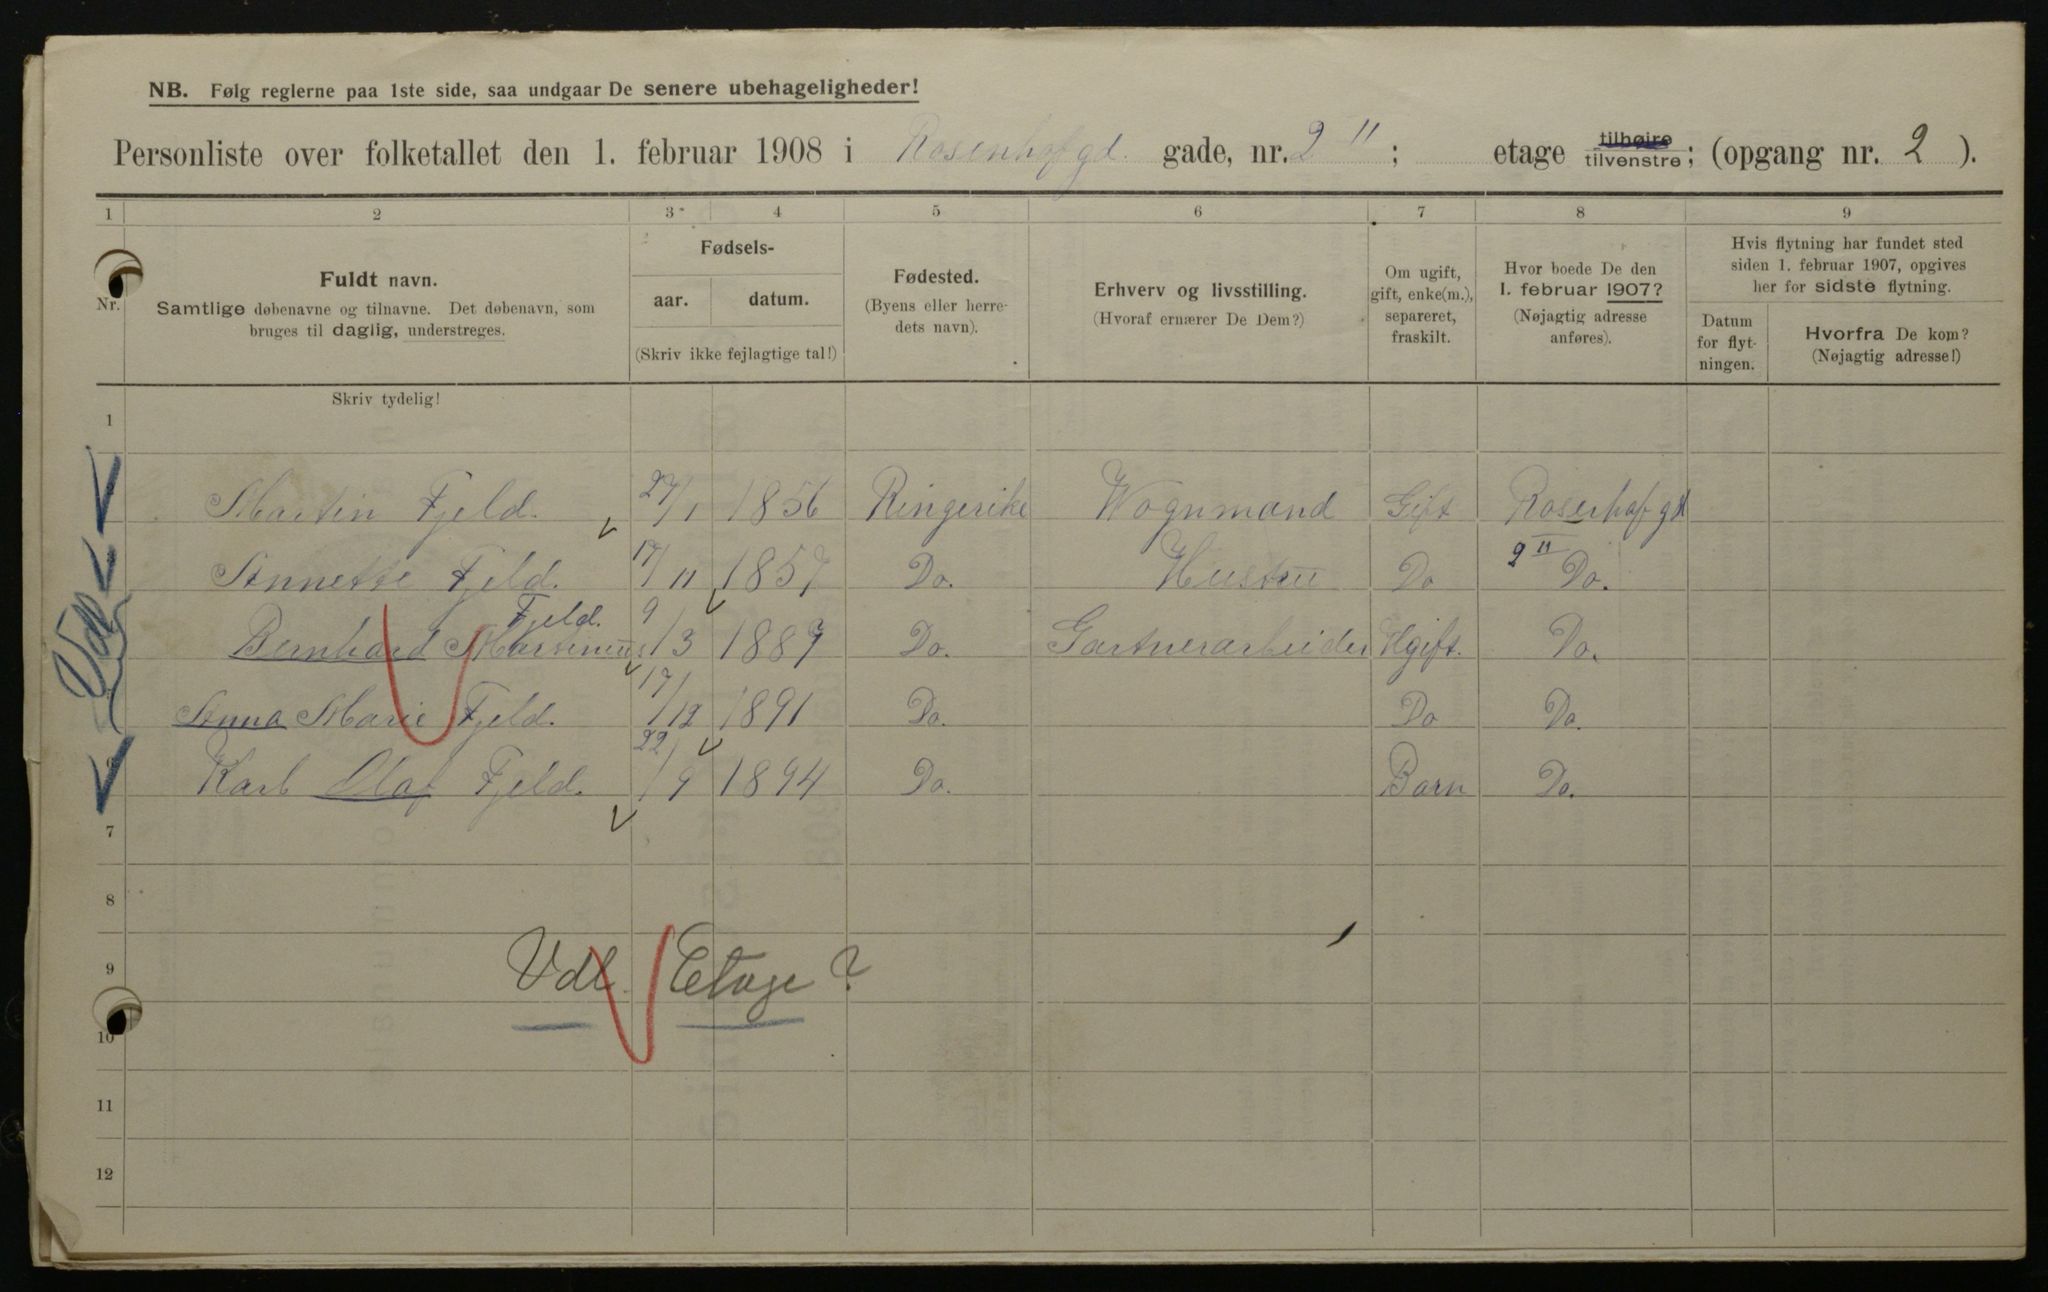 NB. Følg reglerne paa 1ste side, saa undgaar De senere ubehageligheder!
Personliste over folketallet den 1. februar 1908 i Rosenhofgd. gade, nr. 2 II ; etage tilhøire tilvenstre; (opgang nr. 2 ).
1 2 3 4 5 6 7 8 9
Nr.
Fuldt navn.
Samtlige døbenavne og tilnavne. Det døbenavn, som
bruges til daglig, understreges.
Fødsels-
aar. datum.
(Skriv ikke fejlagtige tal!)
Fødested.
(Byens eller herre-
dets navn).
Erhverv og livsstilling.
(Hvoraf ernærer De Dem?)
Om ugift,
gift, enke(m.),
separeret,
fraskilt.
Hvor boede De den
1. februar 1907?
(Nøjagtig adresse
anføres).
Hvis flytning har fundet sted
siden 1. februar 1907, opgives
her for sidste flytning.
Datum
for flyt-
ningen.
Hvorfra De kom?
(Nøjagtig adresse!)
Skriv tydelig!
1
Martin Fjeld. 27/1 1856 Ringerike Vognmand Gift Rosenhofgd
2 II
Annette Fjeld. 17/11 1857 Do. Hustru Do Do.
Fjeld.
Bernhard 9/3 1887 Do. Gartnerarbeider Ugift. Do.
Anna Marie Fjeld. 17/12 1891 Do. Do Do.
6 Karl Olaf Fjeld. 22/9 1894 Do. Barn Do.
Udl
7
8
9
Udl. Etage?
10
11
12